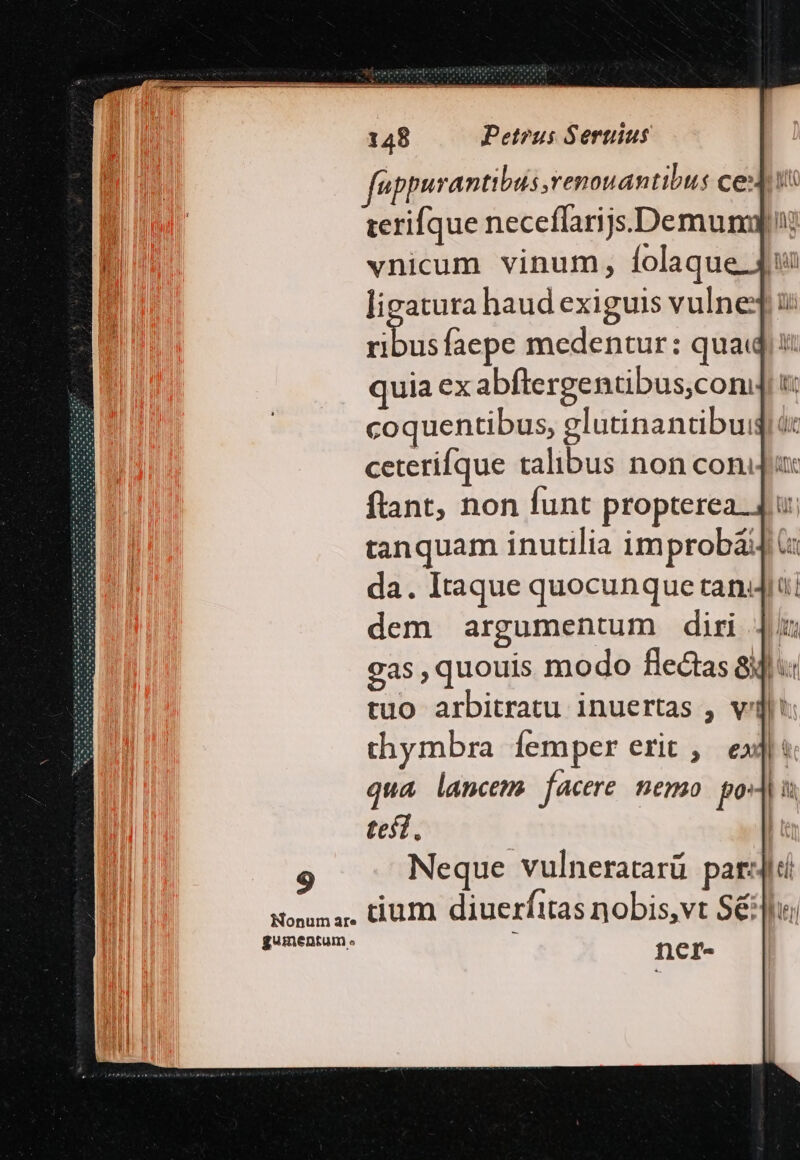 148 Petrus Seruius
ſuppurantibus, renouantibus ce-
teriſque neceſſarijs. Demum
vnicum vinum, ſolaque
ligatura haud exiguis vulne-
ribus ſaepe medentur: qua
quia ex abſtergentibus, con-
coquentibus, glutinantibus
ceteriſque talibus non con-
ſtant, non ſunt propterea
tanquam inutilia improbā-
da. Itaque quocunque tan-
dem argumentum diri
gas, quouis modo flectas &
tuo arbitratu inuertas, v
thymbra ſemper erit, ex
qua lancem facere nemo po-
test.
9 Neque vulneratarū par-
Nonum ar- tium diuerſitas nobis, vt Sē-
gumentum.
ner-